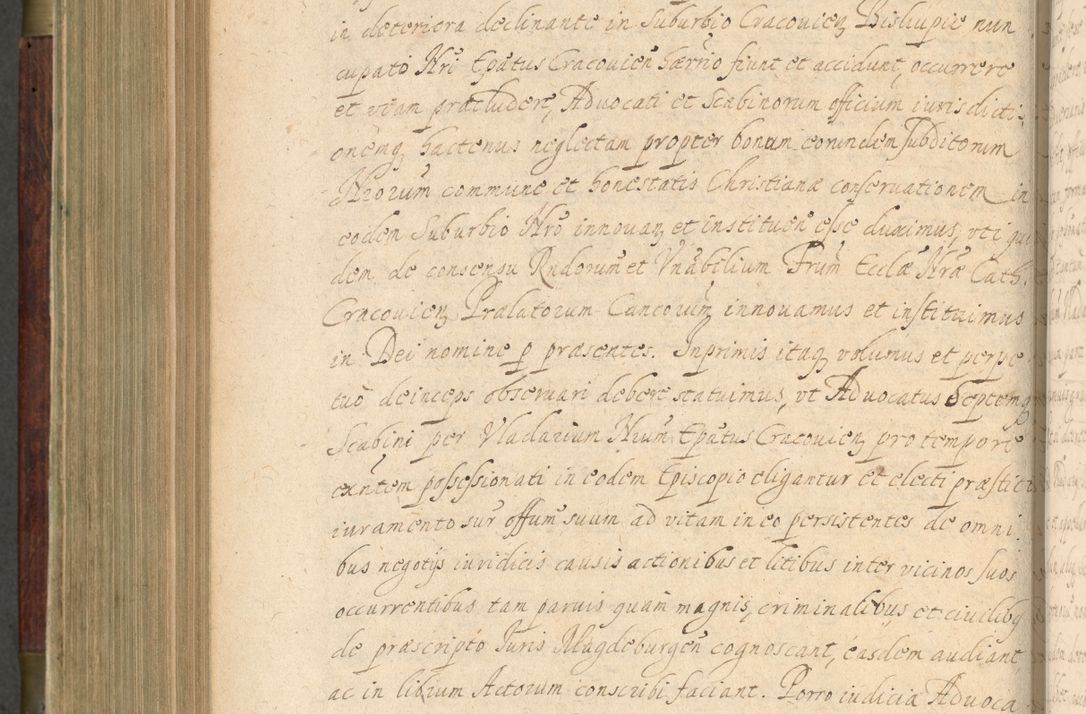 in deteriora declinante in Suburbio Cracouien Biskupie nun
cupato Nro Epatus Cracouien hactno fiunt et accidunt, occurrere
et viam praeludere, Aduocati et Scabinorum officium iuris dicti
onemq hactenus neglectam propter bonum eorundem subditorum
Nrorum commune et honestatis Christianae conseruationem in
eodem Suburbio Nro innouan et instituen esse duximus, vti qui
dem de consensu Rndorum et Vnabilium Frum Ecclae Nrae Cath.
Cracouien Praelatorum Cancorum innouamus et instituimus
in Dei nomine p praesentes. Inprimis itaq volumus et perpe
tuo deinceps obseruari debere statuimus, vt Aduocatus Septemq
Scabini per Vladarium Nrum Epatus Cracouien pro tempore
exntem possessionati in eodem Episcopio eligantur et electi praestito
iuramento sur offum suum ad vitam in eo persistentes de omni
bus negotijs iuridicis causis actionibus et litibus inter vicinos suos
occurrentibus tam paruis quam magnis, criminalibus et ciuilibq
de praescripto Iuris Magdeburgen cognoscant, easdem audiant
ac in librum Actorum conscribi faciant. Porro iudicia Aduoca